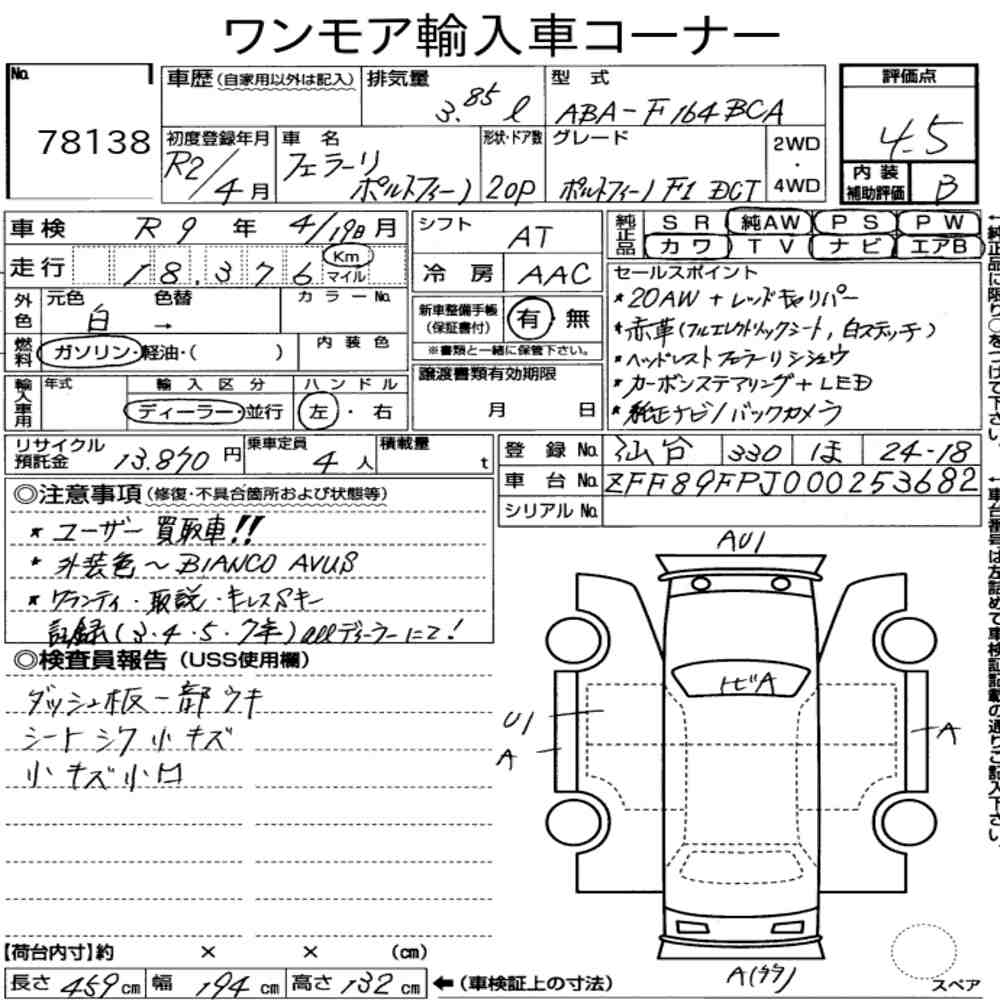 ワンモア輸入車コーナー
No. 78138
車歴(自家用以外は記入) 排気量 3.85ℓ 型式 ABA-F164BCA 評価点 4.5
初度登録年月 R2/4月 車名 フェラーリ ポルトフィーノ 形状・ドア数 2OP グレード ポルトフィーノ F1 DCT 2WD・4WD
内装補助評価 B
車検 R9年 4/19日月
走行 18,376 Km マイル
外色 元色 白 色替 → カラーNo.
燃料 ガソリン・軽油・( ) 内装色
輸入車用 年式 輸入区分 ディーラー・並行 ハンドル 左・右
シフト AT
冷房 AAC
新車整備手帳(保証書付) 有・無
※書類と一緒に保管下さい。
譲渡書類有効期限 月 日
純正品 SR 純AW PS PW
カワ TV ナビ エアB
セールスポイント
* 20AW + レッドキャリパー
* 赤革(フルエレクトリックシート, 白ステッチ)
* ヘッドレスト フェラーリシシュウ
* カーボンステアリング + LED
* 純正ナビ/バックカメラ
←純正品に限り○をつけて下さい。
リサイクル預託金 13,870円 乗車定員 4人 積載量 t
登録No. 仙台 330 ほ 24-18
車台No. ZFF89FPJ000253682
シリアルNo.
←車台番号は左詰めで車検証記載の通りご記入下さい。
◎注意事項(修復・不具合箇所および状態等)
* ユーザー 買取車!!
* 外装色〜BIANCO AVUS
* ワランティ・取説・キレスSキー
記録(3・4・5・7年)allディーラーにて!
◎検査員報告(USS使用欄)
ダッシュ板一部ウキ
シート シワ 小キズ
小キズ小凹
AU1
トビA
U1
A
A
A(ララ)
スペア
【荷台内寸】約 × × (cm)
長さ 459cm 幅 194cm 高さ 132cm ←(車検証上の寸法)